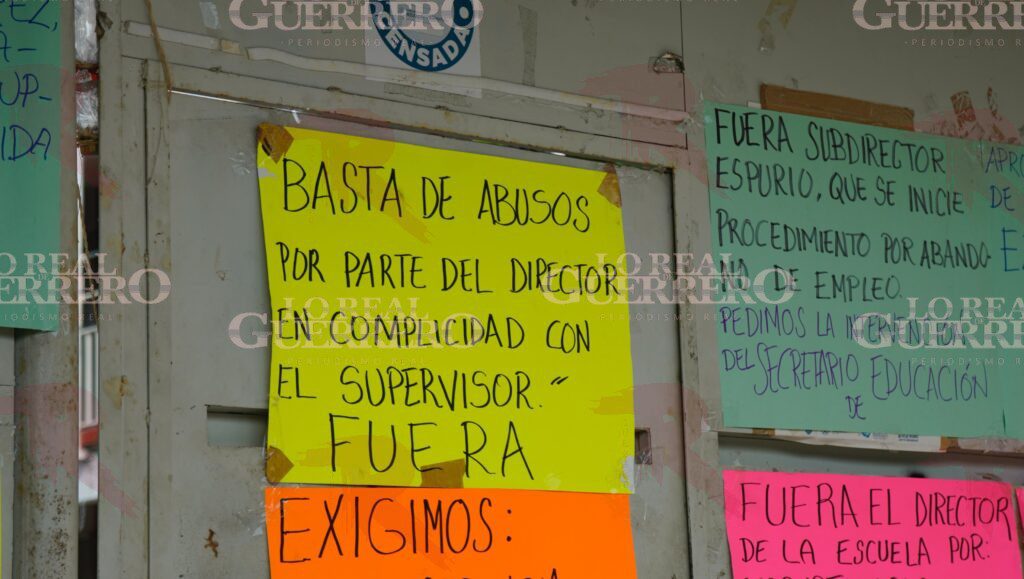 EZ,
A-
UP-
IDA
CENSADA
BASTA DE ABUSOS
POR PARTE DEL DIRECTOR
EN COMPLICIDAD CON
EL SUPERVISOR."
FUERA
EXIGIMOS:
FUERA SUBDIRECTOR
ESPURIO, QUE SE INICIE
PROCEDIMIENTO POR ABANDO-
NO DE EMPLEO.
PEDIMOS LA INTERVENCIÓN
DEL SECRETARIO EDUCACIÓN
DE
APRO
DE
E
FUERA EL DIRECTOR
DE LA ESCUELA POR:
GUERRERO
PERIODISMO REAL
GUERRERO
PERIODISMO REAL
LO REAL
DE
GUERRERO
PERIODISMO REAL
LO REAL
DE
GUERRERO
PERIODISMO REAL
LO REAL
DE
GUERRERO
PERIODISMO REAL
LO REAL
DE
GUERRERO
PERIODISMO REAL